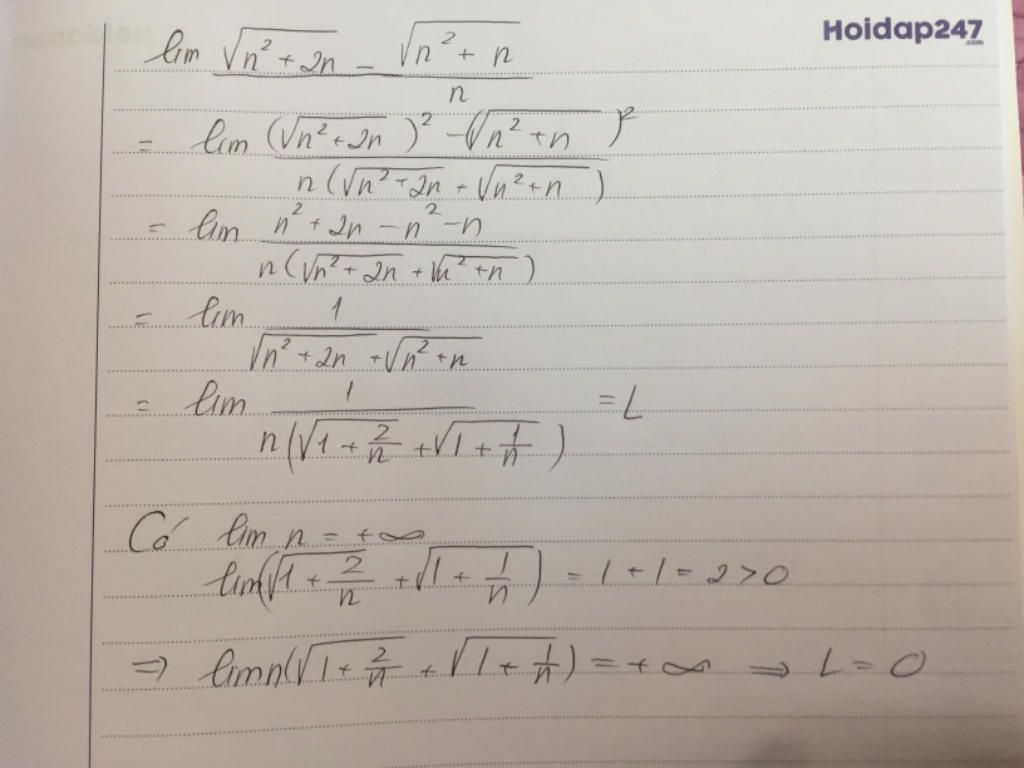 Hoidap247
.com
lim (√(n² + 2n) - √(n² + n)) / n
= lim ((√(n² + 2n))² - (√(n² + n))²) / (n(√(n² + 2n) + √(n² + n)))
= lim (n² + 2n - n² - n) / (n(√(n² + 2n) + √(n² + n)))
= lim 1 / (√(n² + 2n) + √(n² + n))
= lim 1 / (n(√(1 + 2/n) + √(1 + 1/n))) = L
Có lim n = +∞
lim(√(1 + 2/n) + √(1 + 1/n)) = 1 + 1 = 2 > 0
⇒ lim n(√(1 + 2/n) + √(1 + 1/n)) = +∞ ⇒ L = 0